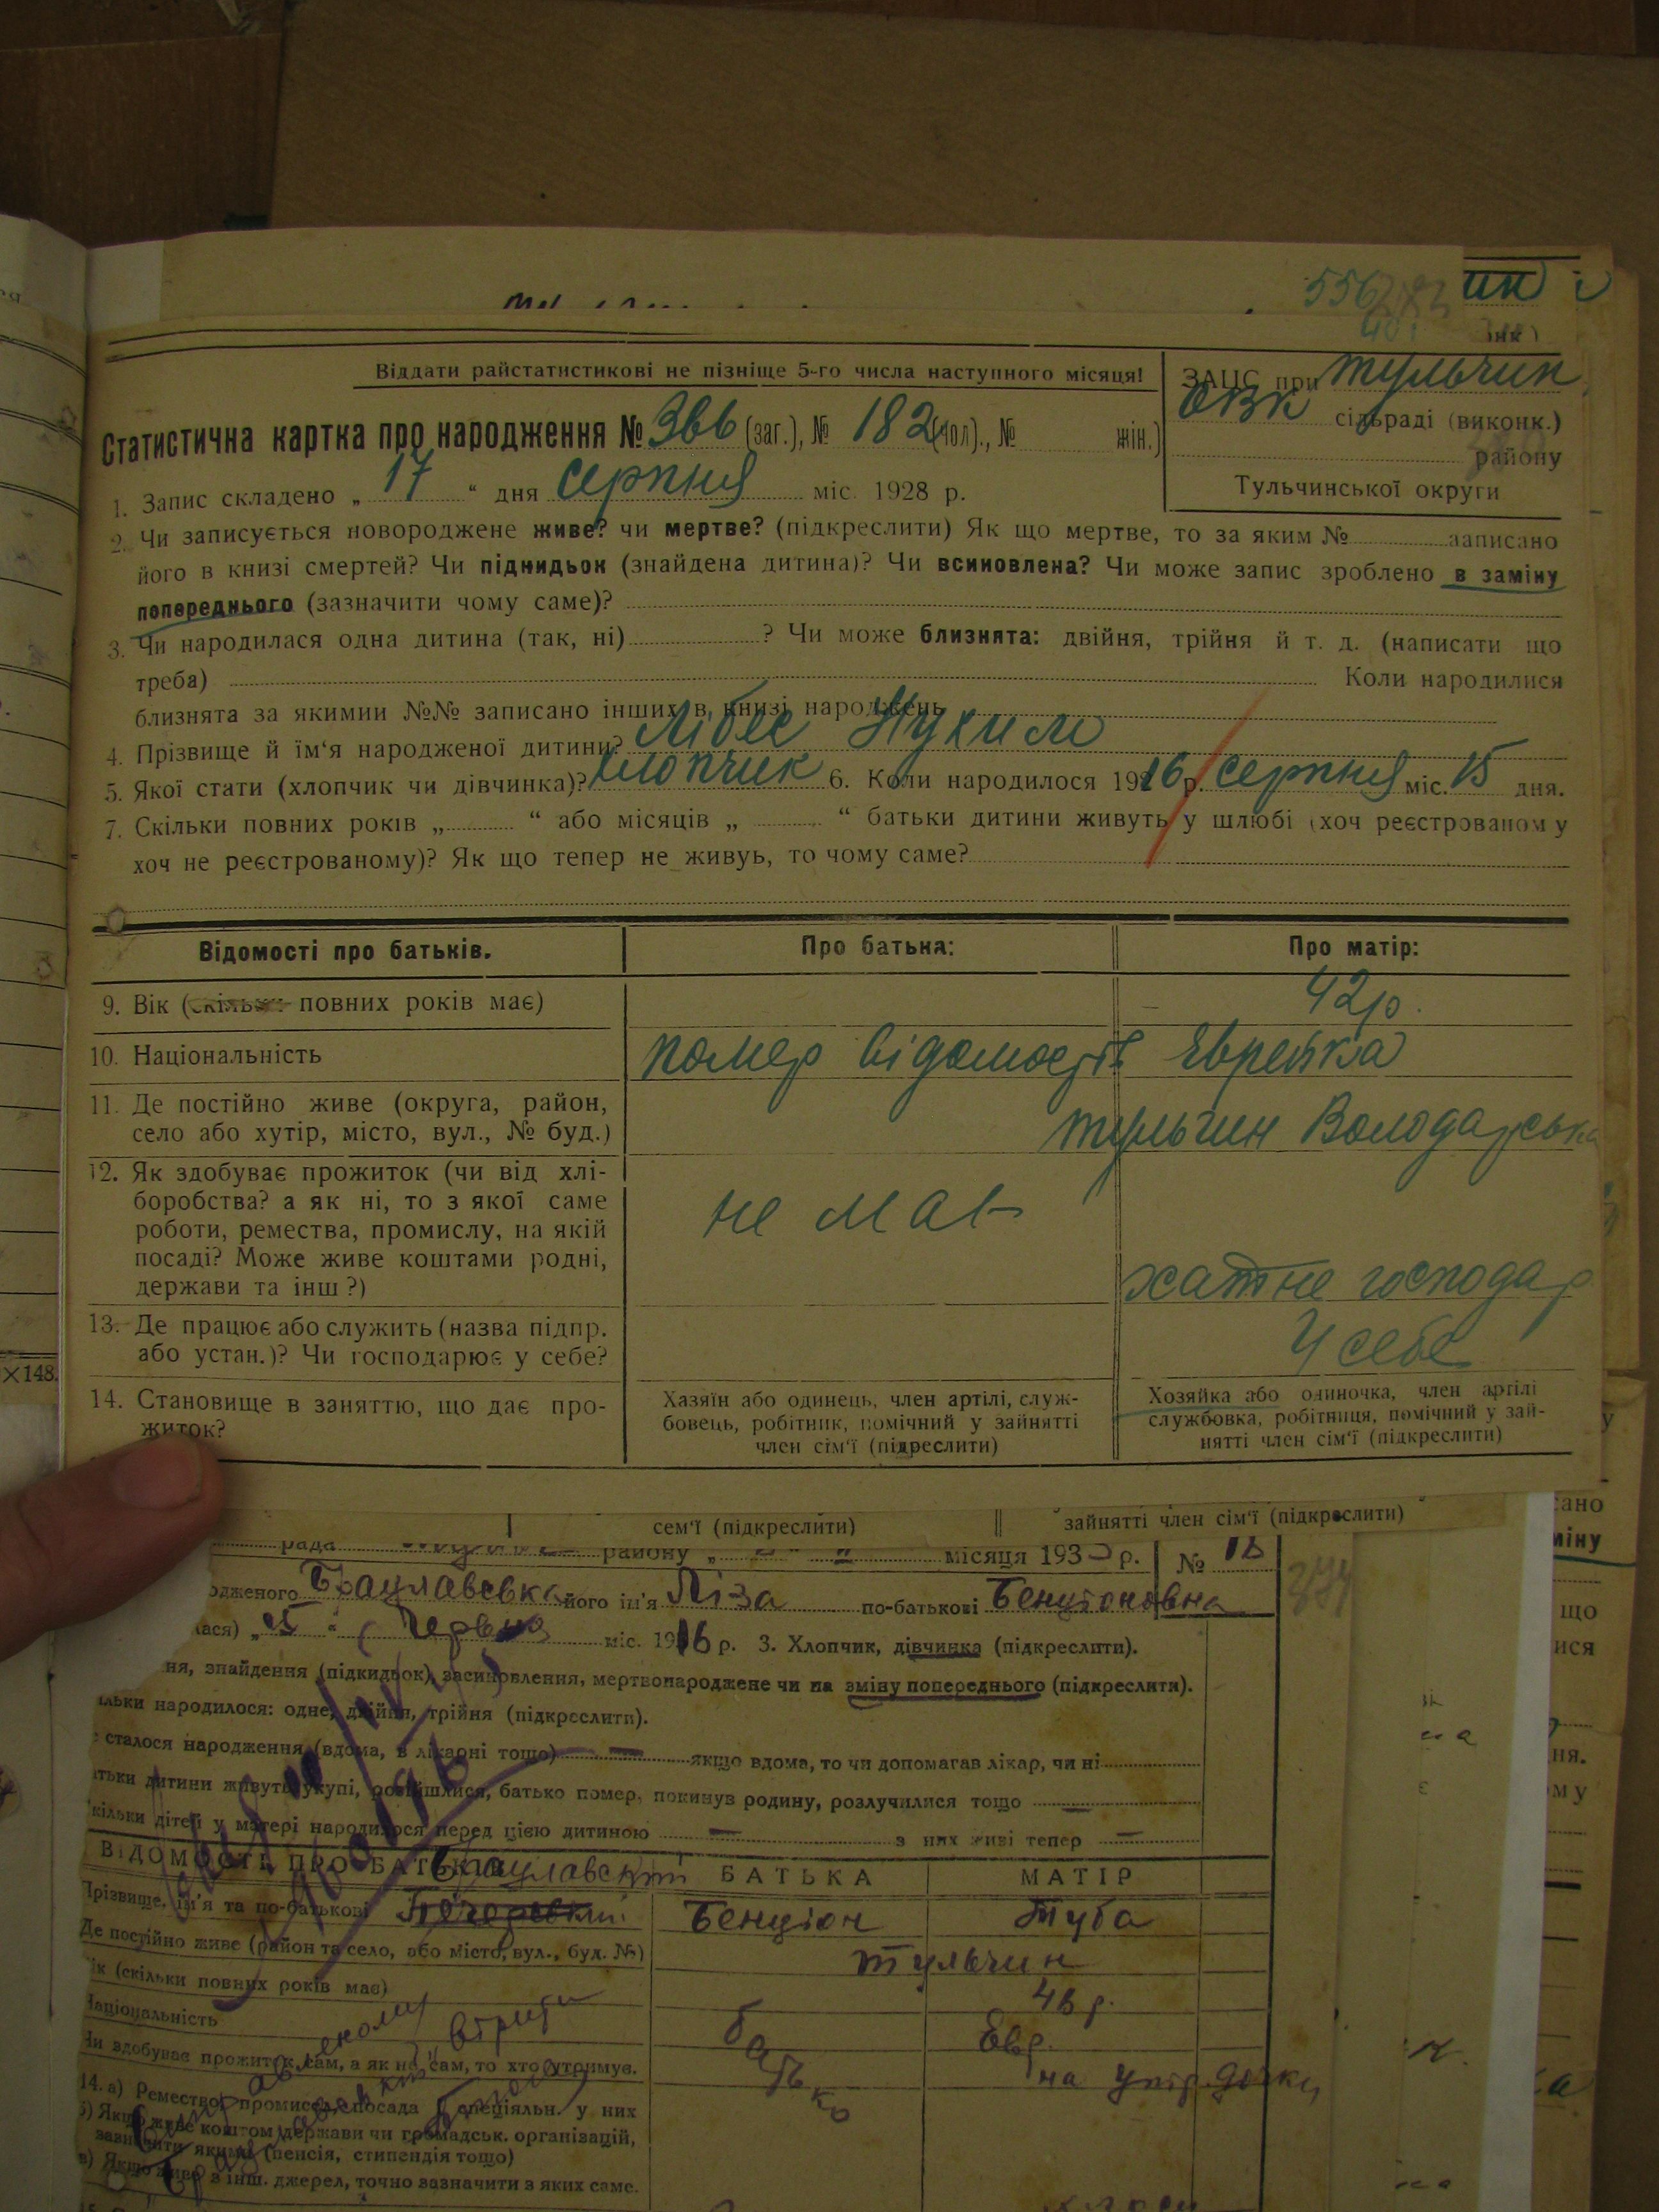 556
Віддати райстатистикові не пізніще 5-го числа наступного місяця!
ЗАЦС при Тульчин
ОВК сільраді (виконк.)
району
Тульчинської округи
Статистична картка про народження № 366 (заг.), № 182 (чол)., № жін.)
1. Запис складено „ 17 “ дня серпня міс. 1928 р.
2. Чи записується новороджене живе? чи мертве? (підкреслити) Як що мертве, то за яким № записано
його в книзі смертей? Чи піднидьок (знайдена дитина)? Чи всиновлена? Чи може запис зроблено в заміну
попереднього (зазначити чому саме)?
3. Чи народилася одна дитина (так, ні) ? Чи може близнята: двійня, трійня й т. д. (написати що
треба) Коли народилися
близнята за якимии №№ записано інших в книзі народжень
4. Прізвище й їм‘я народженої дитини? Лібес Нухим
5. Якої стати (хлопчик чи дівчинка)? хлопчик 6. Коли народилося 1916 р. серпня міс. 15 дня.
7. Скільки повних років „ “ або місяців „ “ батьки дитини живуть у шлюбі (хоч реєстрованому
хоч не реєстрованому)? Як що тепер не живуь, то чому саме?
Відомості про батьків. Про батька: Про матір:
9. Вік (скільки повних років має) 42р.
10. Національність помер відомостів Єврейка
11. Де постійно живе (округа, район,
село або хутір, місто, вул., № буд.) Тульчин Володарська
12. Як здобуває прожиток (чи від хлі-
боробства? а як ні, то з якої саме
роботи, ремества, промислу, на якій
посаді? Може живе коштами родні,
держави та інш ?)
не має
хатне господар
13. Де працює або служить (назва підпр.
або устан.)? Чи господарює у себе?
У себе
14. Становище в заняттю, що дає про-
житок?
Хазяїн або одинець, член артілі, служ-
бовець, робітник, помічний у зайнятті
член сім‘ї (підкреслити)
Хозяйка або одиночка, член артілі
службовка, робітниця, помічний у зай-
нятті член сім‘ї (підкреслити)
сем‘ї (підкреслити) зайнятті член сім‘ї (підкреслити)
рада району місяця 193 р. № 18
одженого Брацлавська його ім'я Ліза по-батькові Бенціоновна
лася) „ 15 “ Червня міс. 1916 р. 3. Хлопчик, дівчинка (підкреслити).
ня, знайдення (підкидьок), засиновлення, мертвонароджене чи на зміну попереднього (підкреслити).
льки народилося: одне, двійня, трійня (підкреслити).
сталося народження (вдома, в лікарні тощо) — якщо вдома, то чи допомагав лікар, чи ні
атьки дитини живуть укупі, розійшлися, батько помер, покинув родину, розлучилися тощо —
кільки дітей у матері народилося перед цією дитиною — з них живі тепер —
ВІДОМОСТІ ПРО БАТЬКІВ Брацлавский БАТЬКА МАТІР
Прізвище, ім'я та по-батькові Бенціон Туба
Де постійно живе (район та село, або місто, вул., буд. №) Тульчин
ік (скільки повних років має) 48 р.
Національність Євр.
Чи здобуває прожиток сам, а як не сам, то хто утримує. батько на утр. дочки
14. а) Ремество, промисел, посада й спеціяльн. у них
б) Якщо живе коштом держави чи громадськ. організацій,
зазначити якими (пенсія, стипендія тощо)
в) Якщо живе з інш. джерел, точно зазначити з яких саме.
×148.